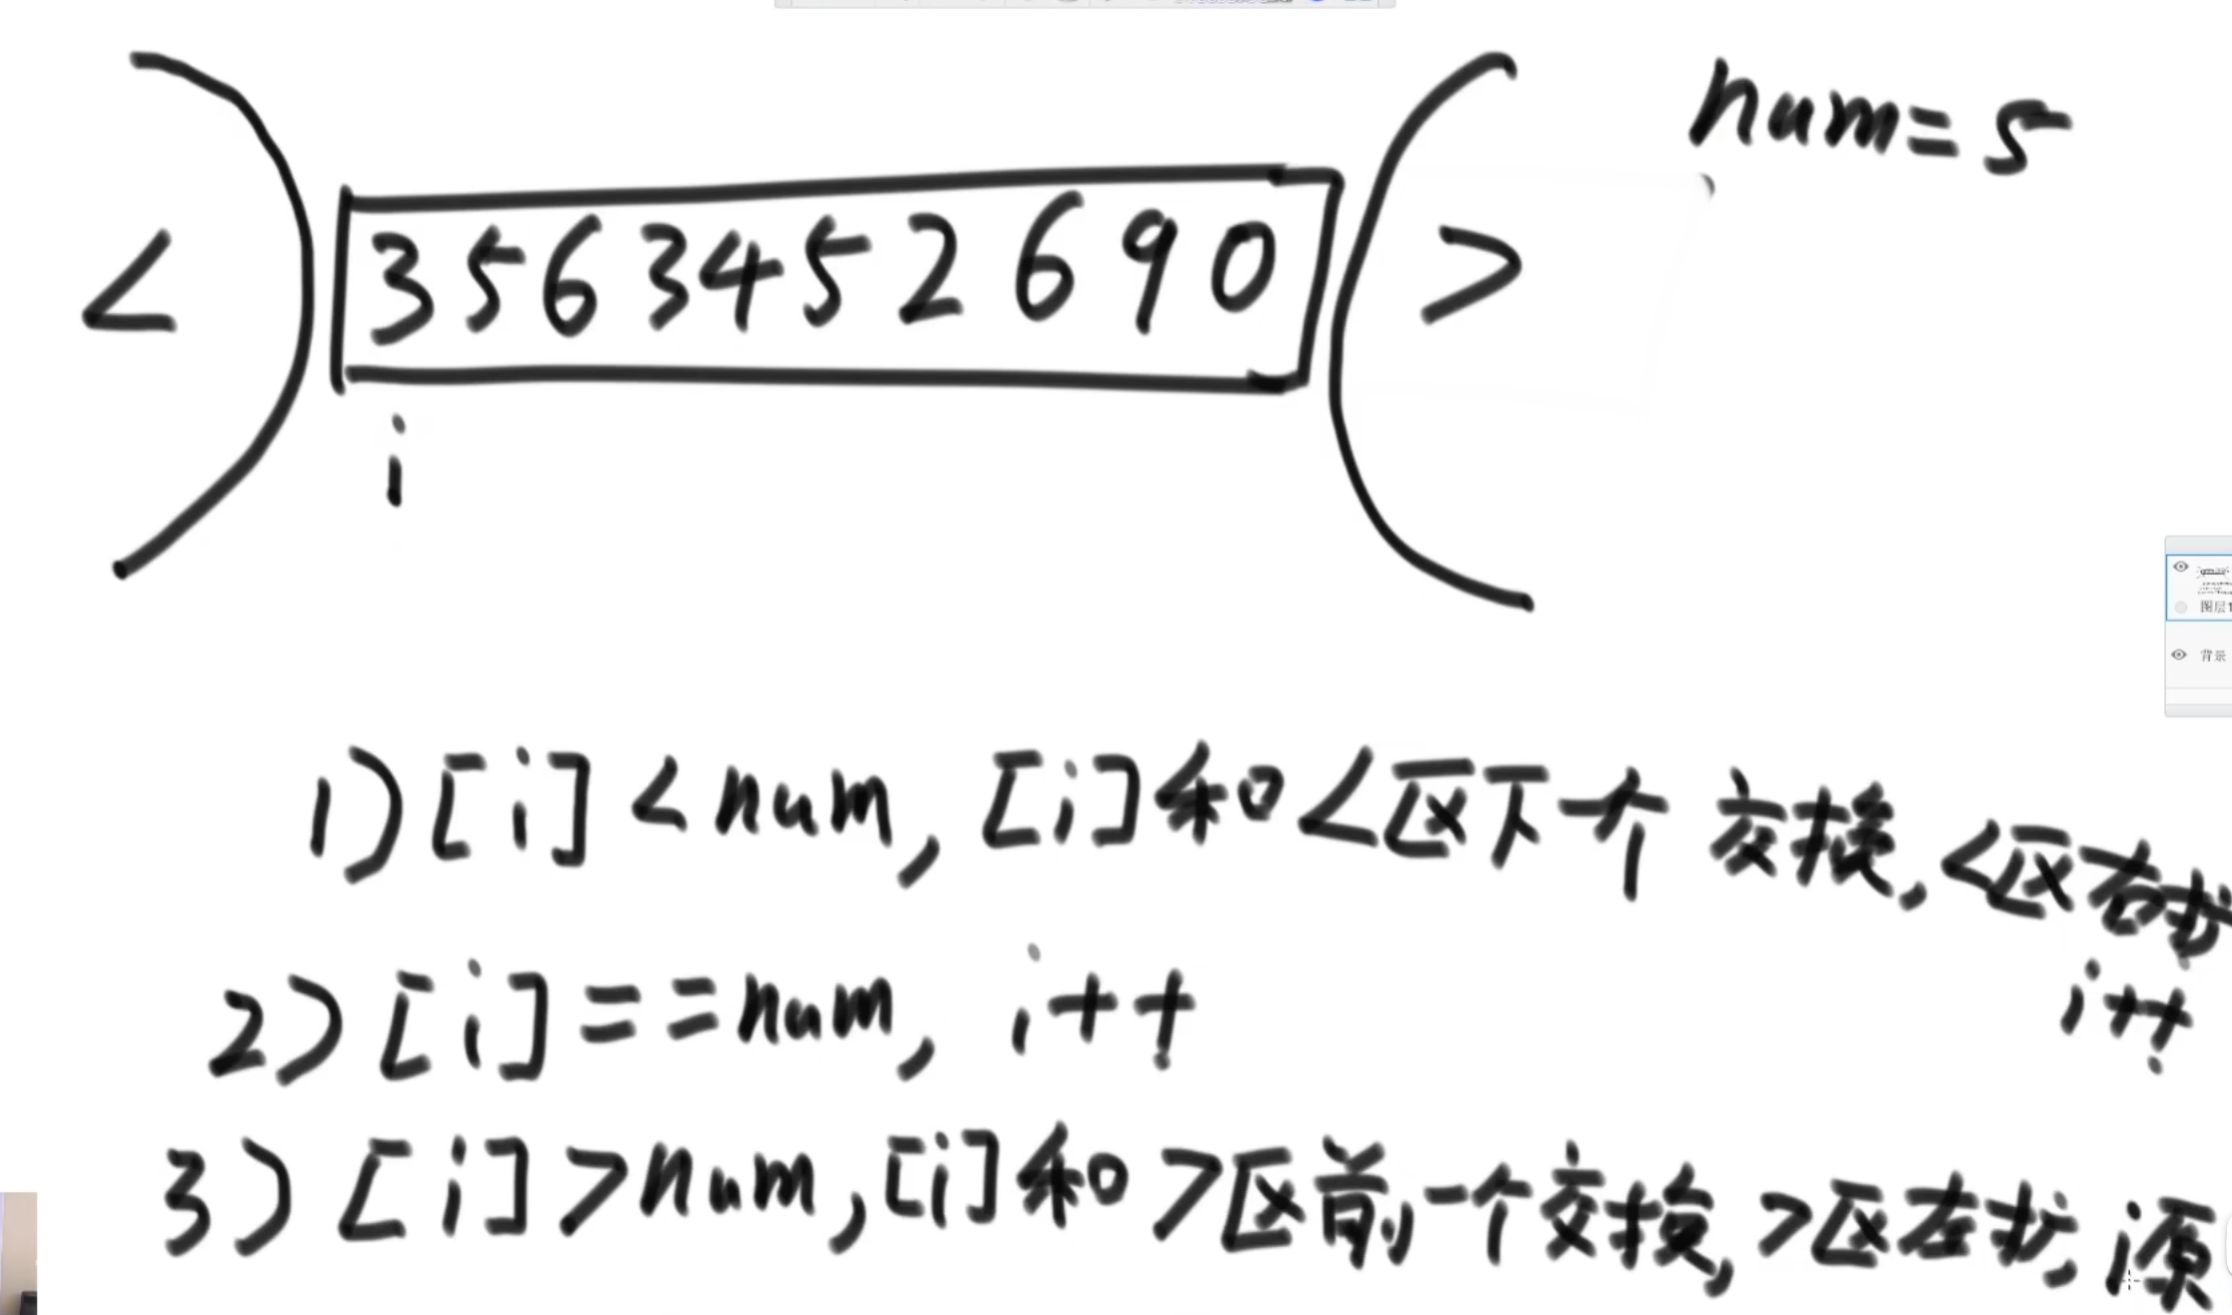 num=5
< 3 5 6 3 4 5 2 6 9 0 >
i
图层1
背景
1) [i] < num, [i]和<区下一个 交换, <区右扩
i++
2) [i] == num, i++
3) [i] > num, [i]和>区前一个交换, >区左扩, i原